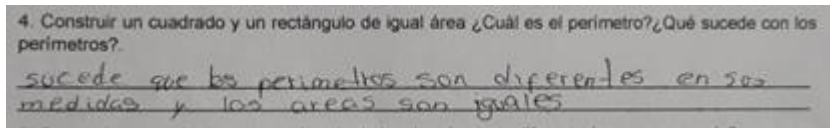 4. Construir un cuadrado y un rectángulo de igual área ¿Cuál es el perímetro?¿Qué sucede con los
perímetros?.
sucede que los perimeltros son diferentes en sus
medidas y los areas son iguales